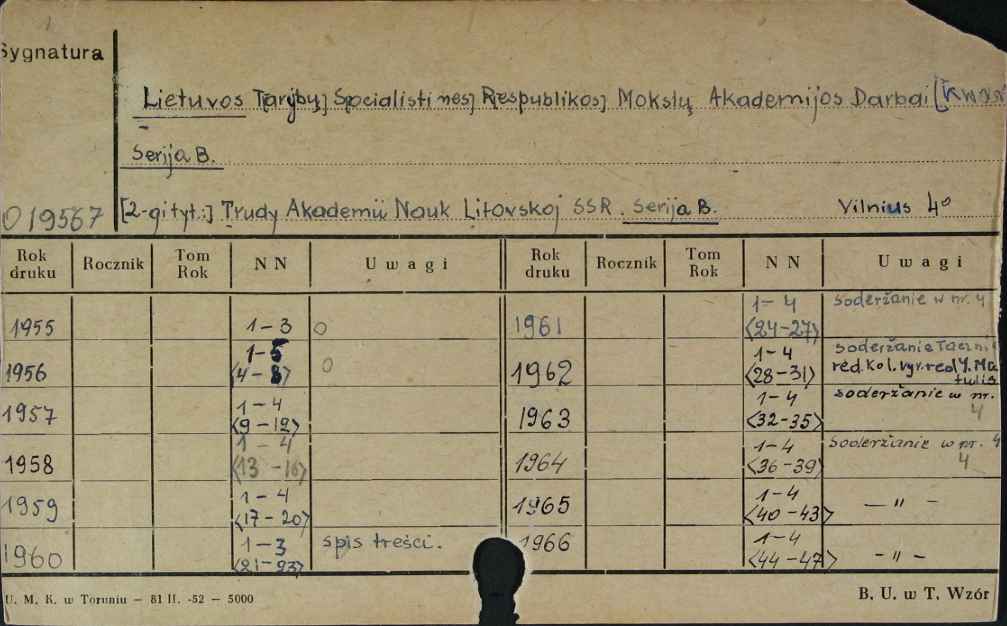 Sygnatura
Lietuvos Taryb[ų] Socialistinės] R[espublikos] Mokslų Akademijos Darbai [Kwart
Serija B.
019567 [2-gi tyt.:] Trudy Akademii Nauk Litovskoj SSR. Serija B. Vilnius 4°
Rok druku Rocznik Tom Rok NN Uwagi Rok druku Rocznik Tom Rok NN Uwagi
1955 1-3 o 1961 1-4 <24-27> soderžanie w nr. 4
1956 1-5 <4-8> o 1962 1-4 <28-31> soderžanie łączn. red. kol. vyr. red. Matulis
1957 1-4 <9-12> 1963 1-4 <32-35> soderžanie w nr. 4
1958 1-4 <13-16> 1964 1-4 <36-39> soderžanie w nr. 4 4
1959 1-4 <17-20> 1965 1-4 <40-43> — " —
1960 1-3 <21-23> spis treści. 1966 1-4 <44-47> - " -
U. M. K. w Toruniu — 81 II. -52 — 5000 B. U. w T. Wzór